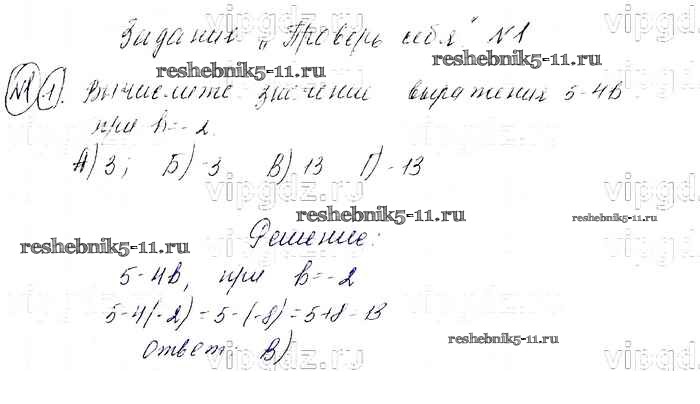 Задание "Проверь себя" №1
№1 1). Вычислите значение выражения 5-4b
при b=-2.
А) 3; Б) -3 В) 13 Г) -13
Решение:
5-4b, при b=-2
5-4(-2)=5-(-8)=5+8=13
Ответ: В)
reshebnik5-11.ru
reshebnik5-11.ru
reshebnik5-11.ru
reshebnik5-11.ru
reshebnik5-11.ru
reshebnik5-11.ru
vipgdz.ru